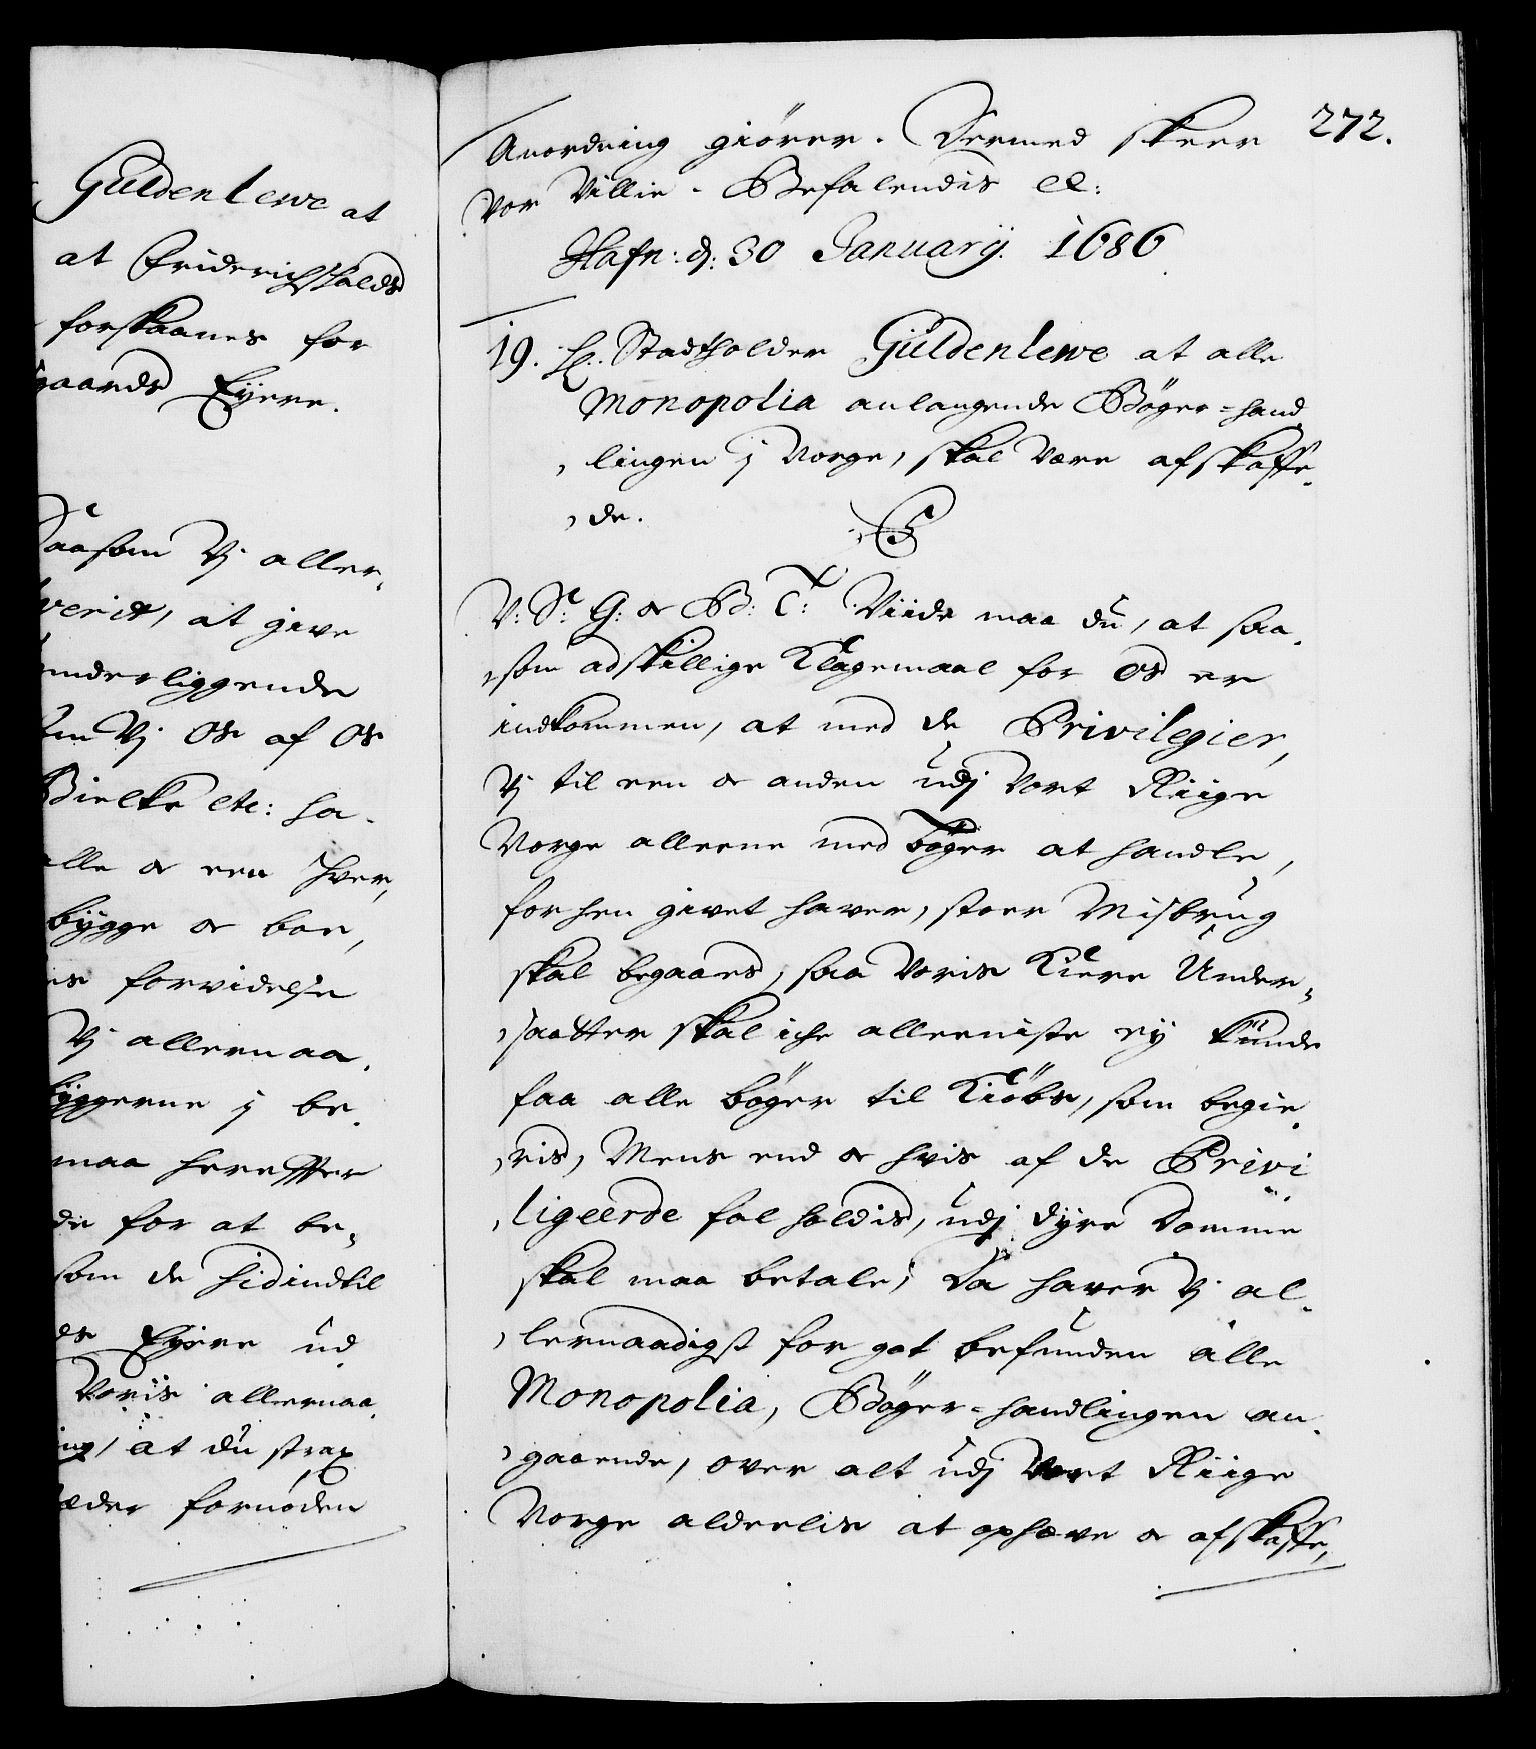 Guldenlewe at
at Friderichshalds
forskaanes for
gaards Eyere.
Saasom Vj aller„
verit, at give
underliggende
Vj Os af Os
Bielke etc: ha„
alle oc een hver,
bygge oc boe,
forvidelse
Vj allernaa„
byggerne j be„
maa herefter
de for at be„
som de hidindtil
Eyere ud
Voris allernaa„
at du strax
steder fornøden
272.
Anordning giører. Dermed skeer
vor Villie. Befalendis etc:
Hafn: d: 30 Januarij. 1686
19. Hr: Stadtholder Güldenlewe at alle
Monopolia anlangende Bøger-hand
„lingen j Norge, skal være afskaffe„
„de.
C5
V: S: G: oc B: T: Viide maa du, at saa„
„som adskillige Klagemaal for Os er
indkommen, at med de Privilegier,
Vj til een oc anden udj Vort Riige
Norge alleene med bøger at handle,
forhen givet haver, stoer Misbrug
skal begaaes, saa Voris Kiere Under„
„saatter skal iche alleeniste ey kunde
faa alle bøger til Kiøbs, som begie„
„ris, Mens end oc hvis af de Privi
„ligeerde fal holdis, udj dyre Domme
skal maa betale; Da haver Vj al„
„lernaadigst for got befunden alle
Monopolia, Bøger-handlingen an„
„gaaende, over alt udj Vort Riige
Norge aldeelis at ophæve oc afskaffe,